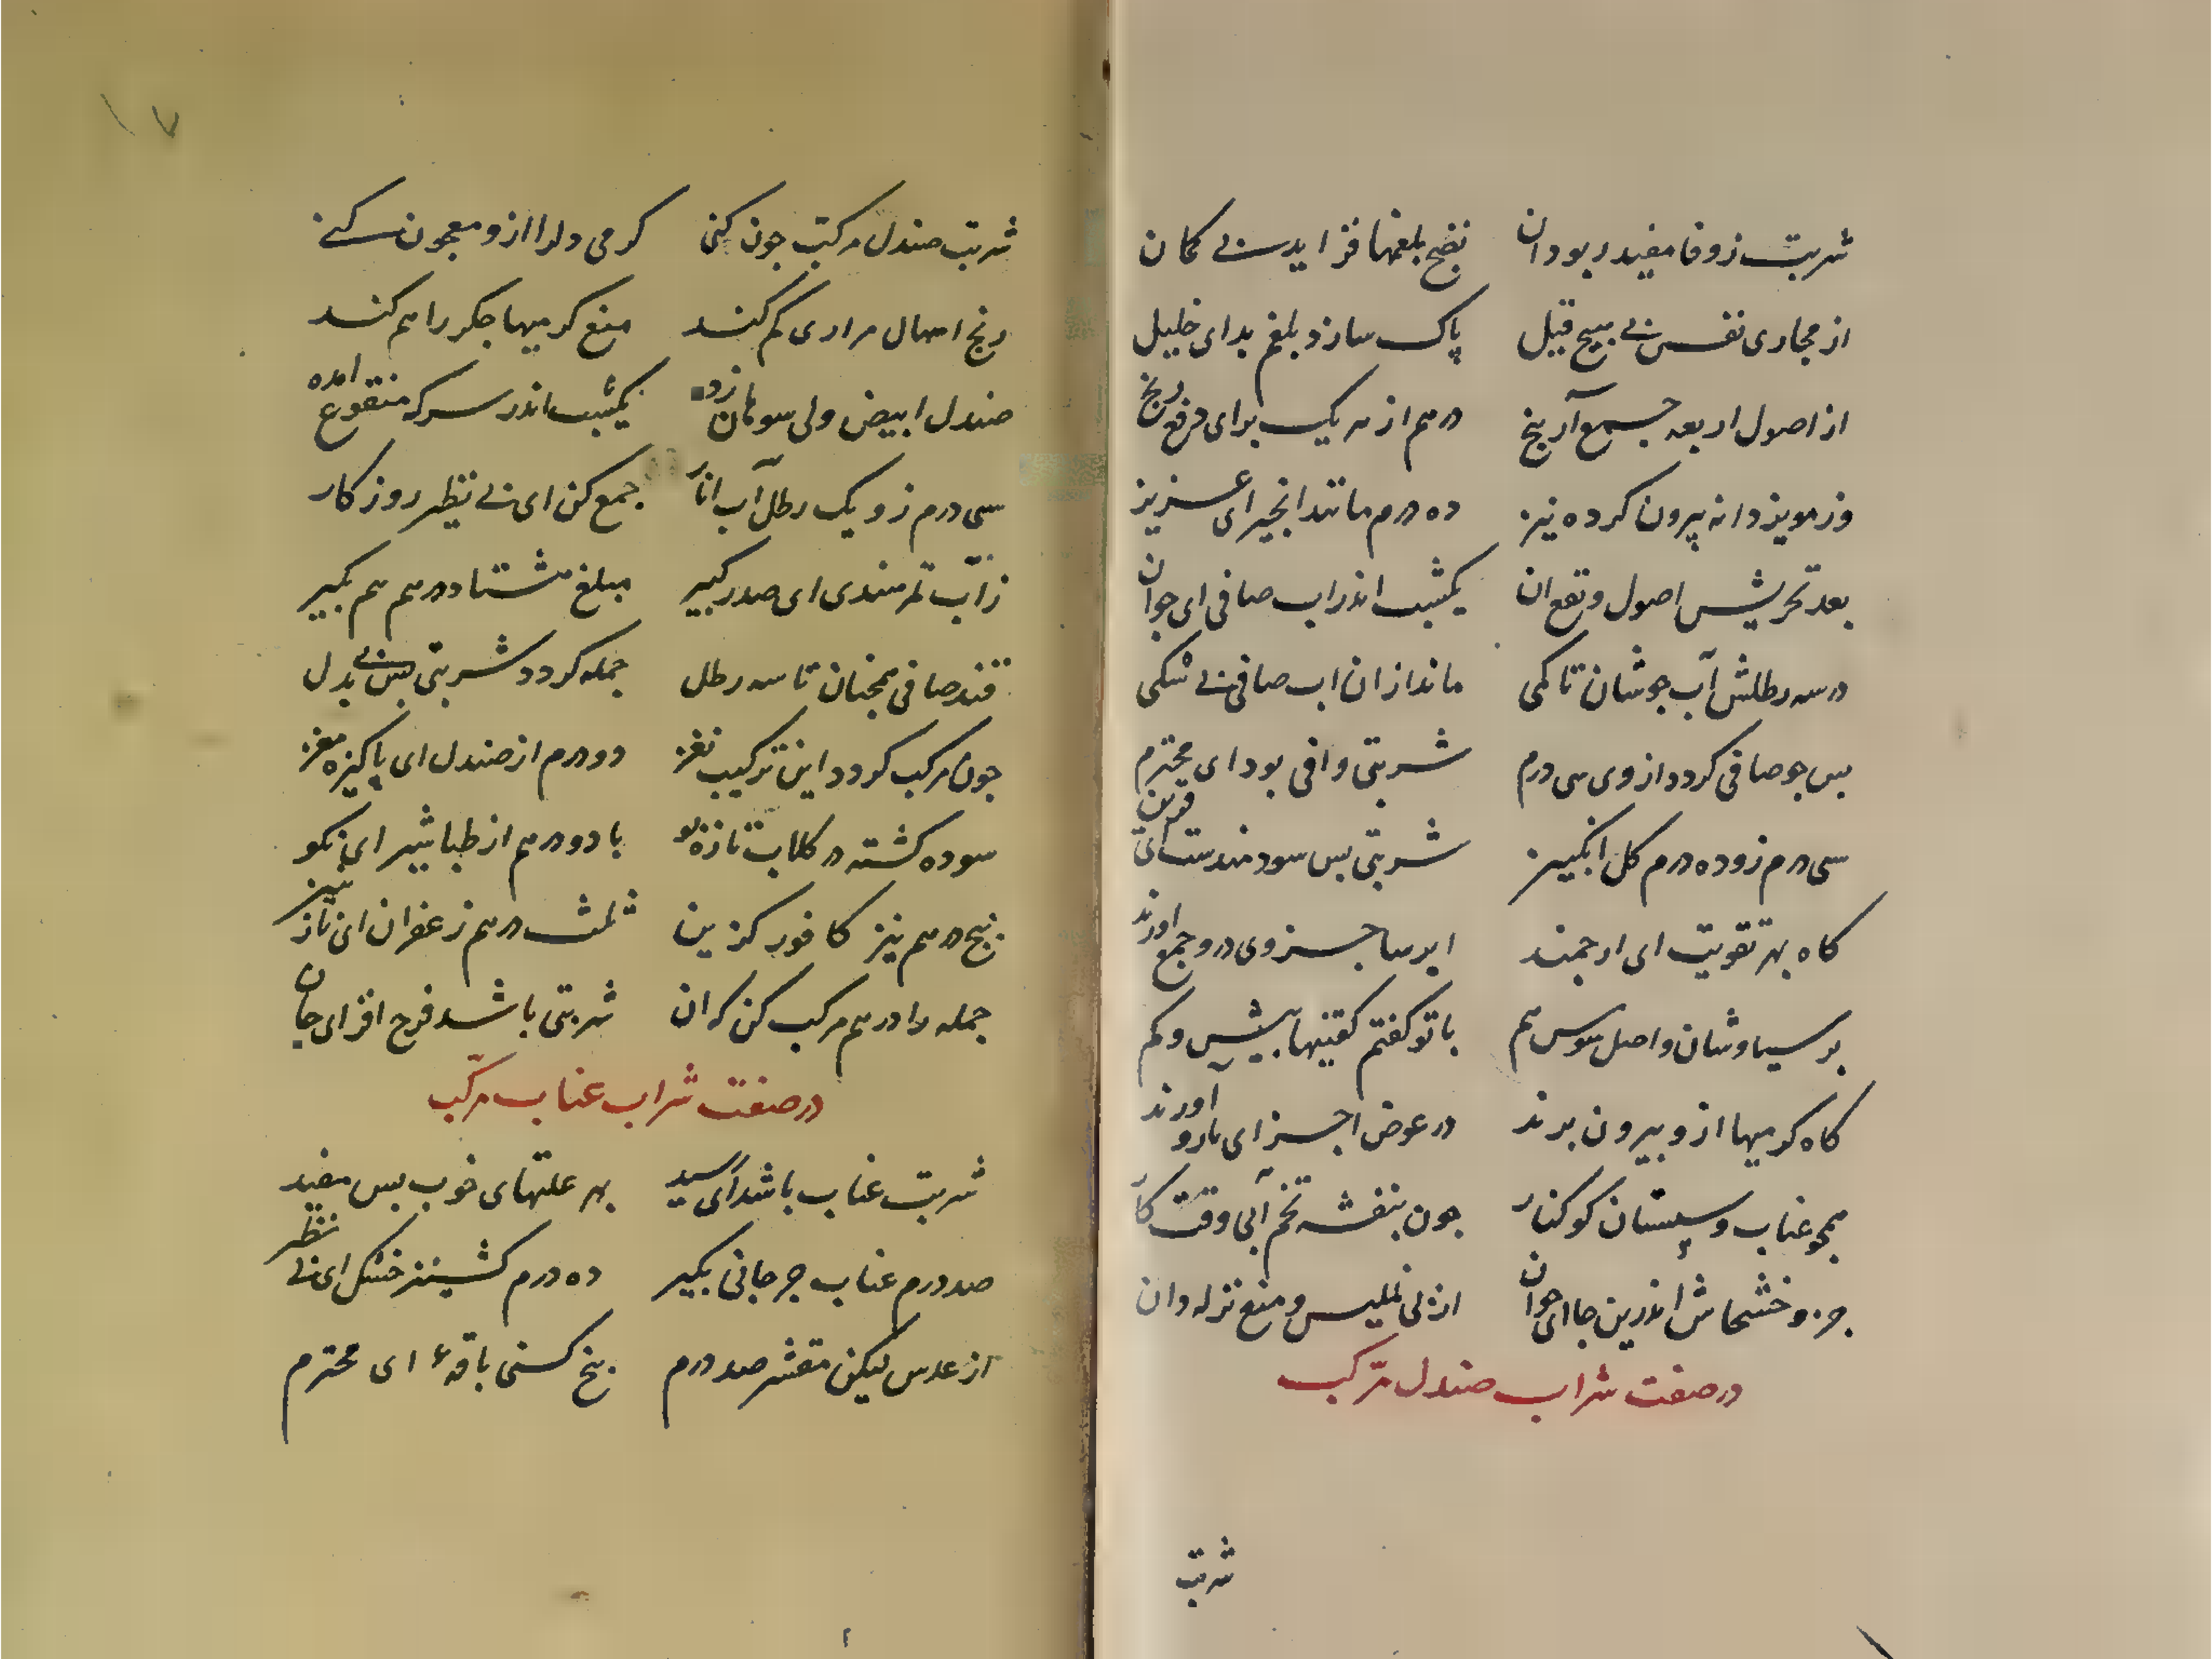 شربت زوفا مفید ربو دان نضج بلغمها فزاید بی کمان
از مجاری نفس بی هیچ قیل پاک سازد بلغم بد ای خلیل
از اصول اربعه جمع آر بنج درهم از هر یک برای دفع رنج
وز مویز دانه بیرون کرده نیز ده درم مانند انجیر ای عزیز
بعد تحریش اصول و نقع ان یکشب اندر اب صافی ای جوان
در سه رطلش آب جوشان تا کمی ماند از ان اب صافی بی شکی
بس جو صافی کردد از وی سی درم شربتی وافی بود ای محترم
سی درم زو ده درم کل انکبین شربتی بس سودمندست ای قرین
کاه بهر تقویت ای ارجمند ایرسا جزوی در و جمع اورند
بر سیاوشان و اصل سوس هم با تو کفتم کفتنیها بیش و کم
کاه کرمیها ازو بیرون برند در عوض اجزای بارد اورند
همجو عناب و سپستان کوکنار جون بنفشه تخم آبی وقت کار
جز و خشخاش اندرین جا ای جوان از بی تملیس و منع نزله دان
در صفت شراب صندل مرکب
شربت
۱۷
شربت صندل مرکب جون کنی کرمی دلرا ازو معجون کنی
رنج اسهال مراری کم کند منع کرمیها جکر را هم کند
صندل ابیض ولی سوهان زده یکشب اندر سرکه منقوع امده
سی درم زو یک رطل آب انار جمع کن ای بی نظیر روزکار
زآب تمر هندی ای صدر کبیر مبلغ هشتاد درهم هم بکیر
قند صافی همجنان تا سه رطل جمله کردد شربتی بس بی بدل
جون مرکب کردد این ترکیب نغز دو درم از صندل ای پاکیزه مغز
سوده کشته در کلاب تازه بو با دو درهم از طباشیر ای نکو
بنج درهم نیز کافور کزین ثلث درهم زعفران ای
جمله را درهم مرکب کن که ان شربتی باشد فرح افزای جان
در صفت شراب عناب مرکب
شربت عناب باشد ای سید بهر علتهای خوب بس مفید
صد درم عناب جرجانی بکیر ده درم کشنیز خشک ای بی نظیر
از عدس لیکن مقشر صد درم بنج کسنی باقهٔ ای محترم